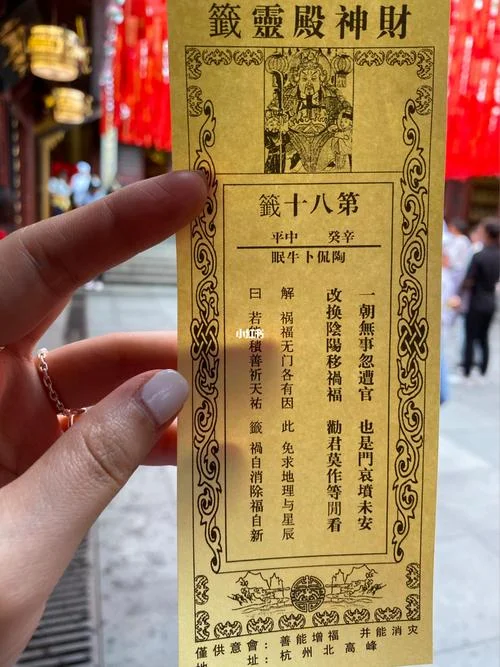 財神殿靈籤
第八十籤
辛癸 中平
陶侃卜牛眠
一朝無事忽遭官 也是門哀墳未安
改換陰陽移禍福 勸君莫作等閒看
解 祸福无门各有因 此 免求地理与星辰
曰 若積善祈天祐 籤 禍自消除福自新
小红书
僅供意會：善能增福 并能消灾
地址：杭州北高峰